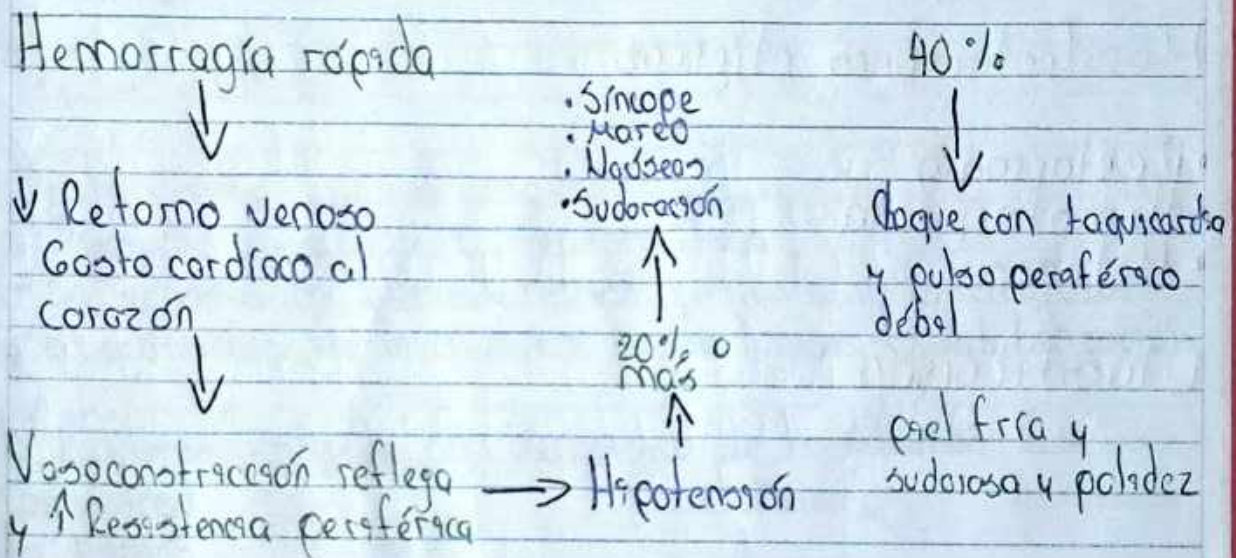 Hemorragía rápida
↓
↓ Retorno venoso
Gasto cardíaco al
corazón
↓
Vasoconstricción reflega
y ↑ Resistencia periférica
→ Hipotensión
↑
20% o
más
↑
• Síncope
• Mareo
• Náuseas
• Sudoración
40%
↓
Choque con taquicardia
y pulso periférico
débil
piel fría y
sudorosa y palidez